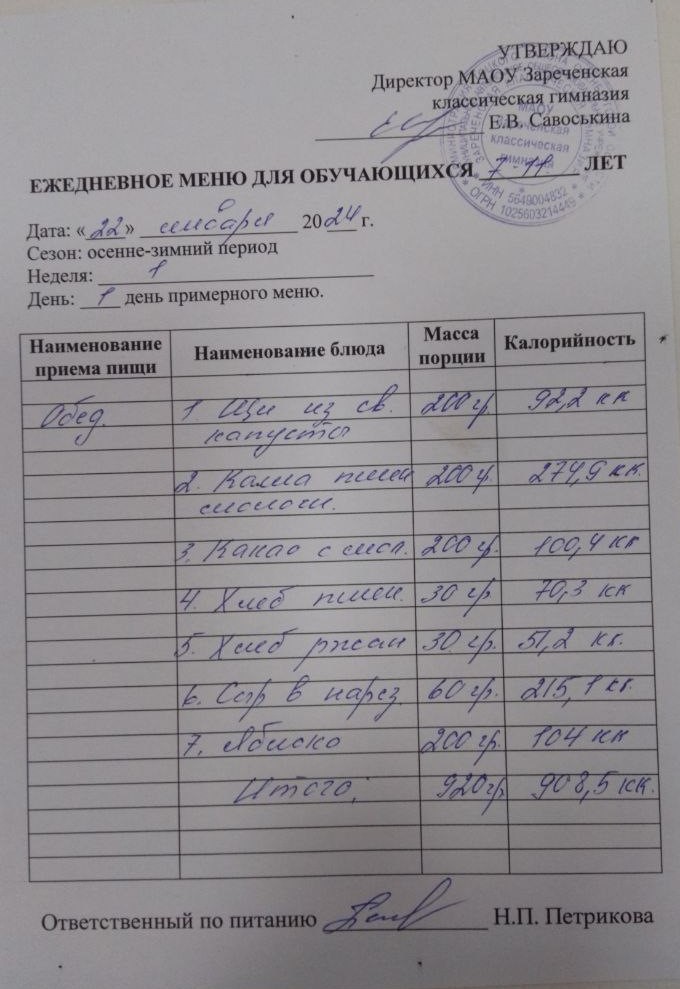 УТВЕРЖДАЮ
Директор МАОУ Зареченская
классическая гимназия
Е.В. Савоськина
МАОУ
Зареченская
классическая
гимназия
* ИНН 5649004832 *
* ОГРН 1025603214449 *
ЕЖЕДНЕВНОЕ МЕНЮ ДЛЯ ОБУЧАЮЩИХСЯ 7-11 ЛЕТ
Дата: «22» января 2024 г.
Сезон: осенне-зимний период
Неделя: 1
День: 1 день примерного меню.
Наименование приема пищи Наименование блюда Масса порции Калорийность
Обед. 1 Щи из св. 200 гр. 92,2 кк
капусты
2. Каша пшен 200 гр. 274,9 кк.
с молоком.
3. Какао с мол. 200 гр. 100,4 кк
4. Хлеб пшен. 30 гр. 70,3 кк
5. Хлеб ржан 30 гр. 51,2 кк.
6. Сыр в нарез. 60 гр. 215,1 кк.
7. Яблоко 200 гр. 104 кк
Итого: 920 гр. 908,5 кк.
Ответственный по питанию Н.П. Петрикова